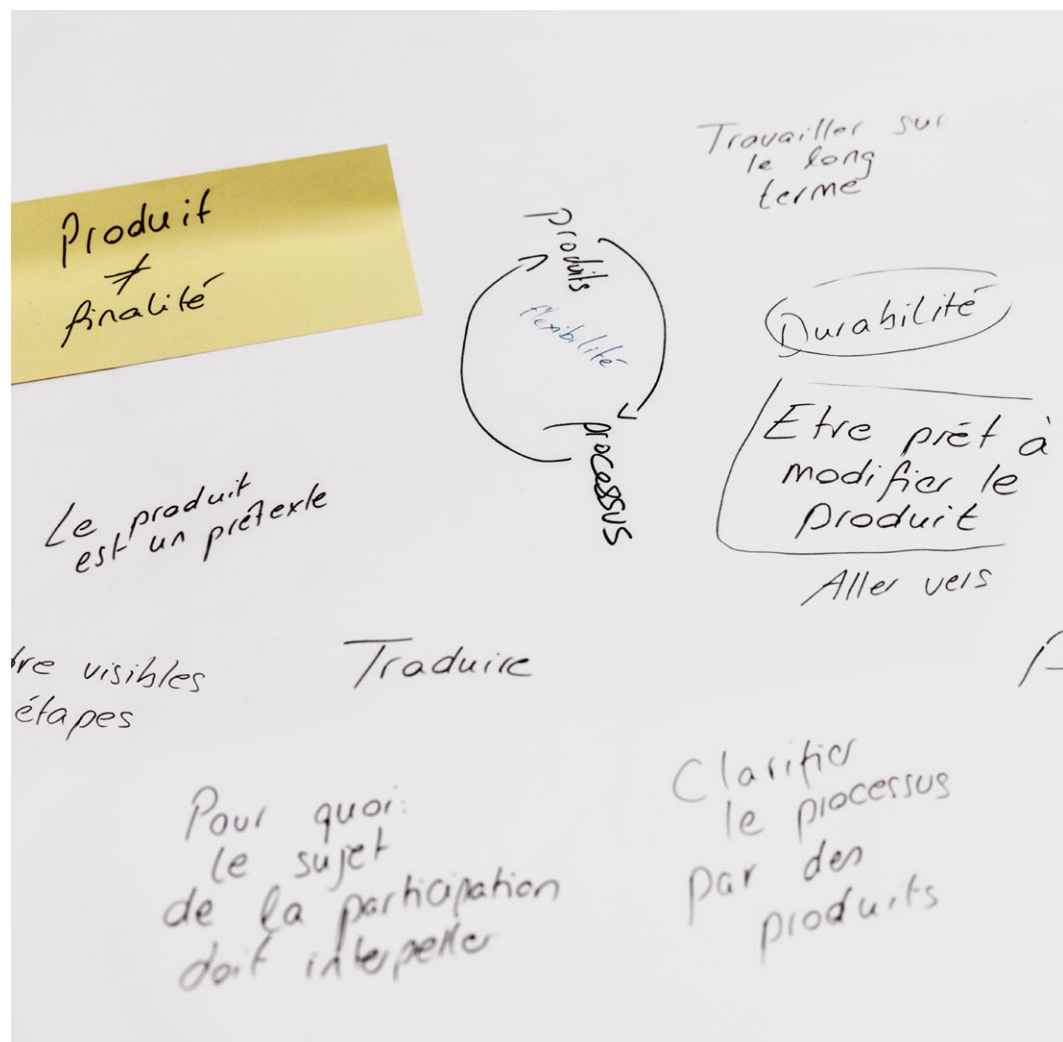 Produit
≠
finalité
Travailler sur
le long
terme
produits
flexibilité
processus
Durabilité
Etre prêt à
modifier le
produit
Aller vers
Le produit
est un prétexte
visibles
étapes
Traduire
Pour quoi:
le sujet
de la participation
doit interpeller
Clarifier
le processus
par des
produits